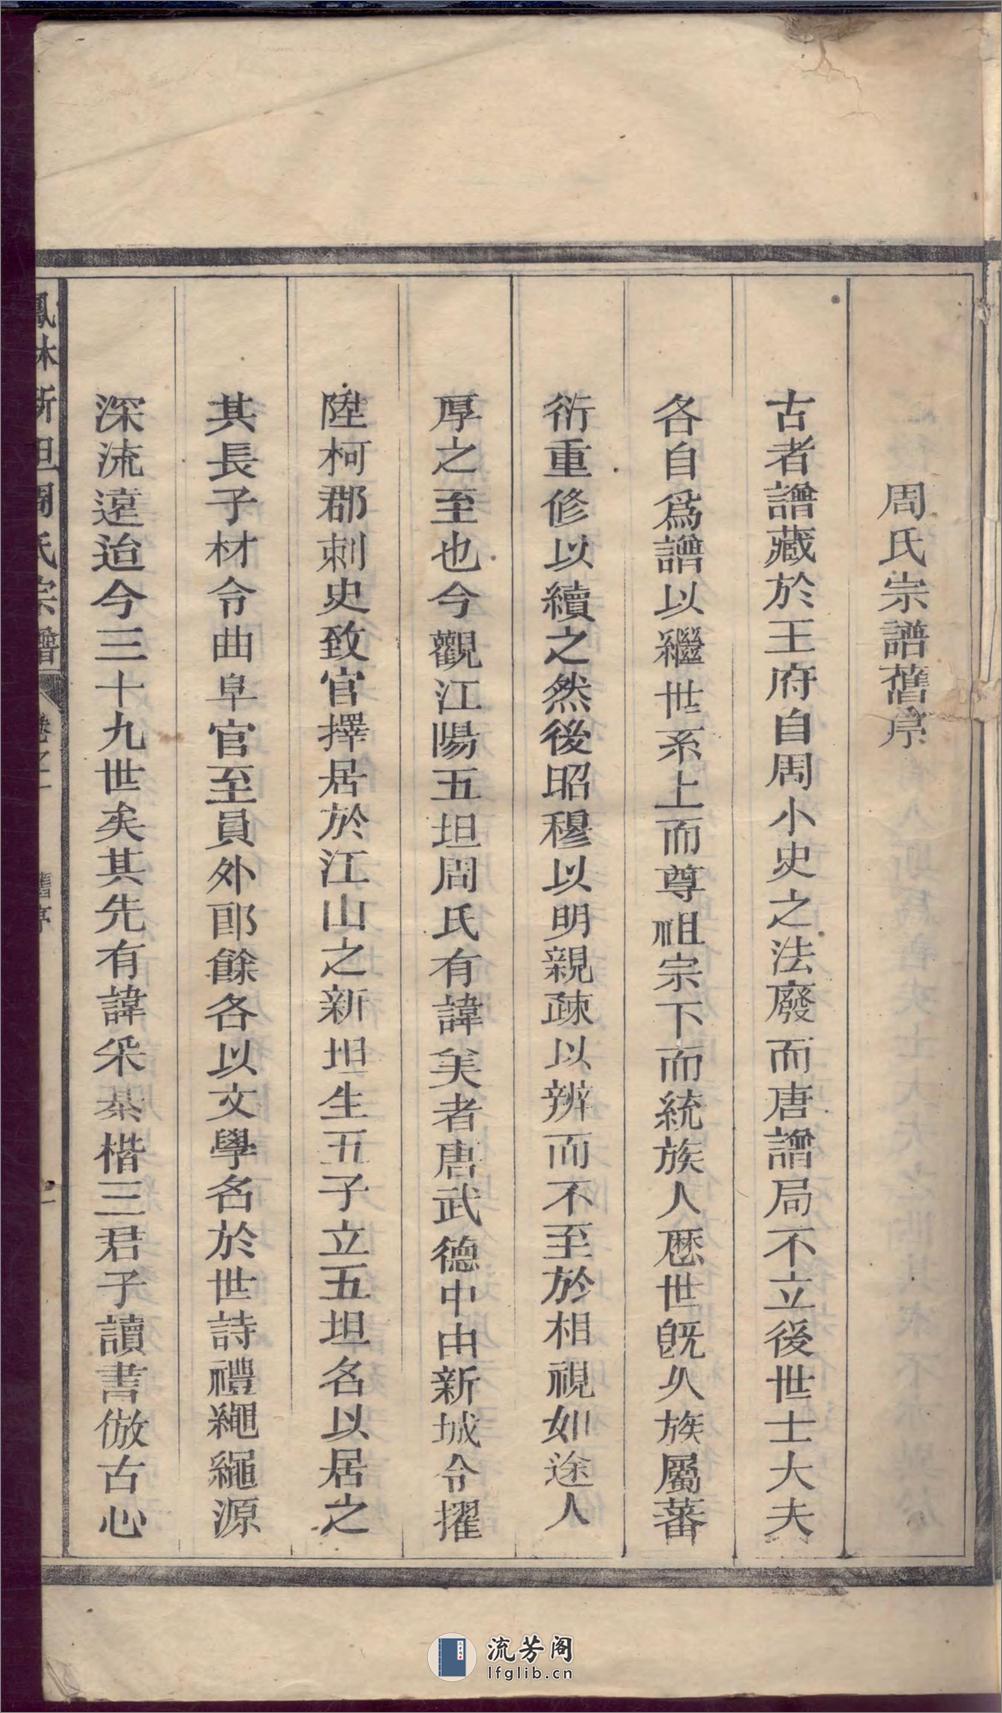 周氏宗譜舊序
古者譜藏於王府自周小史之法廢而唐譜局不立後世士大夫
各自爲譜以繼世系上而尊祖宗下而統族人歷世旣久族屬蕃
衍重修以續之然後昭穆以明親疎以辨而不至於相視如途人
厚之至也今觀江陽五坦周氏有諱美者唐武德中由新城令擢
陞柯郡刺史致官擇居於江山之新坦生五子立五坦名以居之
其長子材令曲阜官至員外郎餘各以文學名於世詩禮繩繩源
深流遠迨今三十九世矣其先有諱釆棊楷三君子讀書倣古心
鳳林新坦周氏宗譜
卷之一
舊序
一
流芳阁
lfglib.cn